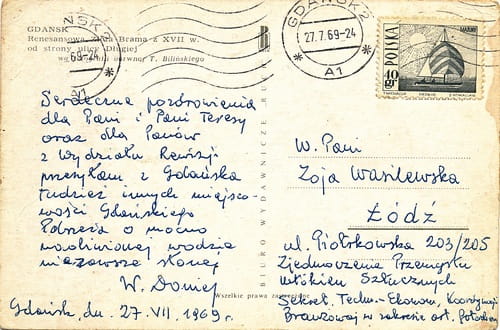 GDAŃSK
Renesansowa Złota Brama z XVII w.
od strony ulicy Długiej
T. Bilińskiego
GDAŃSK 2
27.7.69-24
A1
69-24
A1
POLSKA
40 gr
BIURO WYDAWNICZE RUCH
Serdeczne pozdrowienia
dla Pani i Pani Teresy
oraz dla Panów
z Wydziału Rewizji
przesyłam z Gdańska
tudzież innych miejsco-
wości Gdańskiego
o mocno
wodzie
nie zawsze słonej
W.
Gdańsk, dn. 27. VII. 1969 r.
W. Pani
Zoja Wasilewska
Łódź
ul. Piotrkowska 203/205
Zjednoczenie Przemysłu
Włókien Sztucznych
Sekret. Techn.-Ekonom. Koordynacji
Branżowej w zakresie art.
Wszelkie prawa zastrzeżone